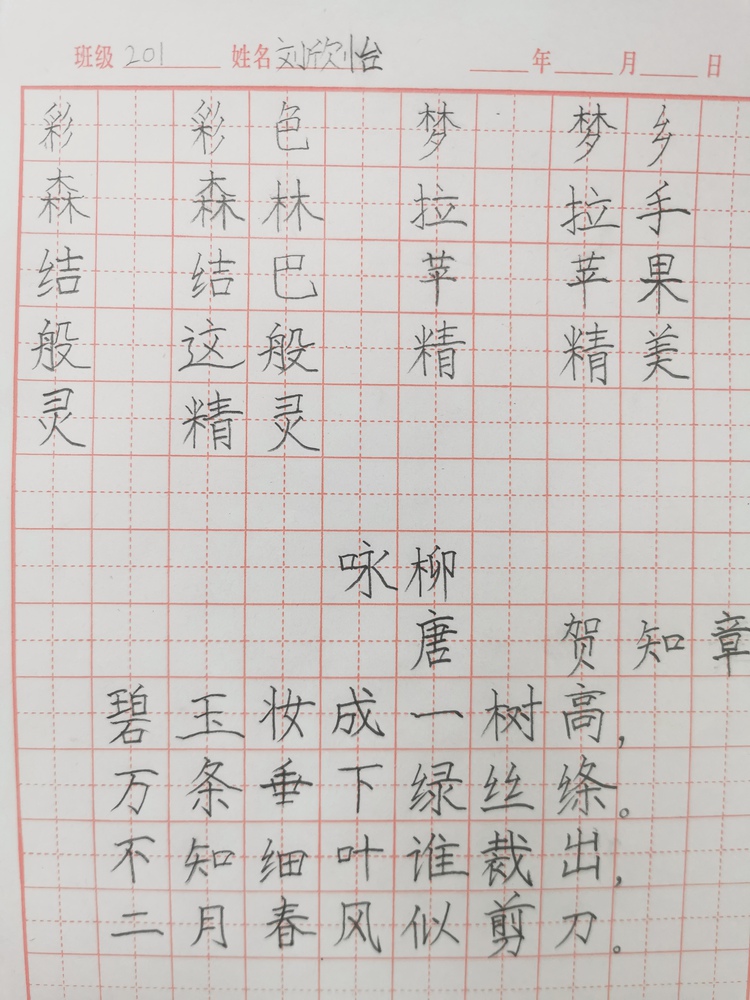 班级 201 姓名 刘欣怡 年 月 日
彩 彩色 梦 梦乡
森 森林 拉 拉手
结 结巴 苹 苹果
般 这般 精 精美
灵 精灵
咏柳
唐 贺知章
碧玉妆成一树高,
万条垂下绿丝绦。
不知细叶谁裁出,
二月春风似剪刀。